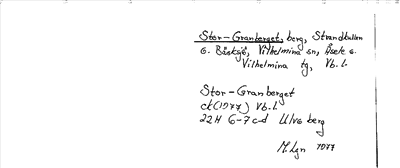 Stor-Granberget, berg, Strandkullen
o. Båsksjö, Vilhelmina sn, Åsele o.
Vilhelmina tg, Vb. l.
Stor-Granberget
ck(1977) Vb.l.
22H 6-7 c-d Ulvoberg
M.Lgn 1977